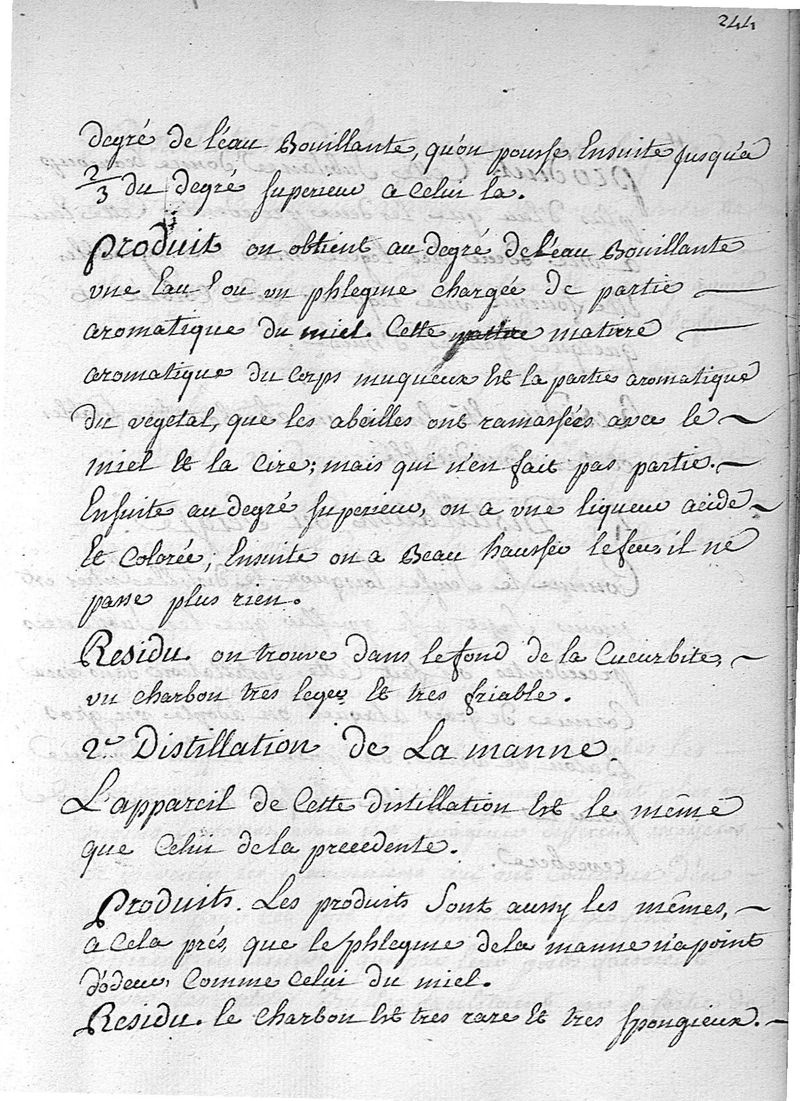 244
degré de l'éau Bouillante, qu'on pousse Ensuite jusqu'a
2/3 du degré superieur a Celui la.
produit on obtient au degré de l'éau Bouillante
une Eau ou un phlegme chargée de partie
aromatique du miel. Cette matiere
aromatique du Corps muqueux Est la partie aromatique
du vegetal, que les abeilles ont ramassées avec le
miel Et la Cire; mais qui n'en fait pas partie.
Ensuite au degré superieur, on a une liqueur acide
Et Colorée; Ensuite on a Beau hausser le feu, il ne
passe plus rien.
Residu on trouve dans le fond de la Cucurbite,
un charbon tres leger Et tres friable.
2.e Distillation de La manne.
L'appareil de Cette distillation Est le même
que Celui de la precedente.
produits. Les produits Sont aussy les mêmes,
a Cela prés que le phlegme de la manne n'a point
d'odeur Comme Celui du miel.
Residu. le Charbon Est tres rare Et tres spongieux.